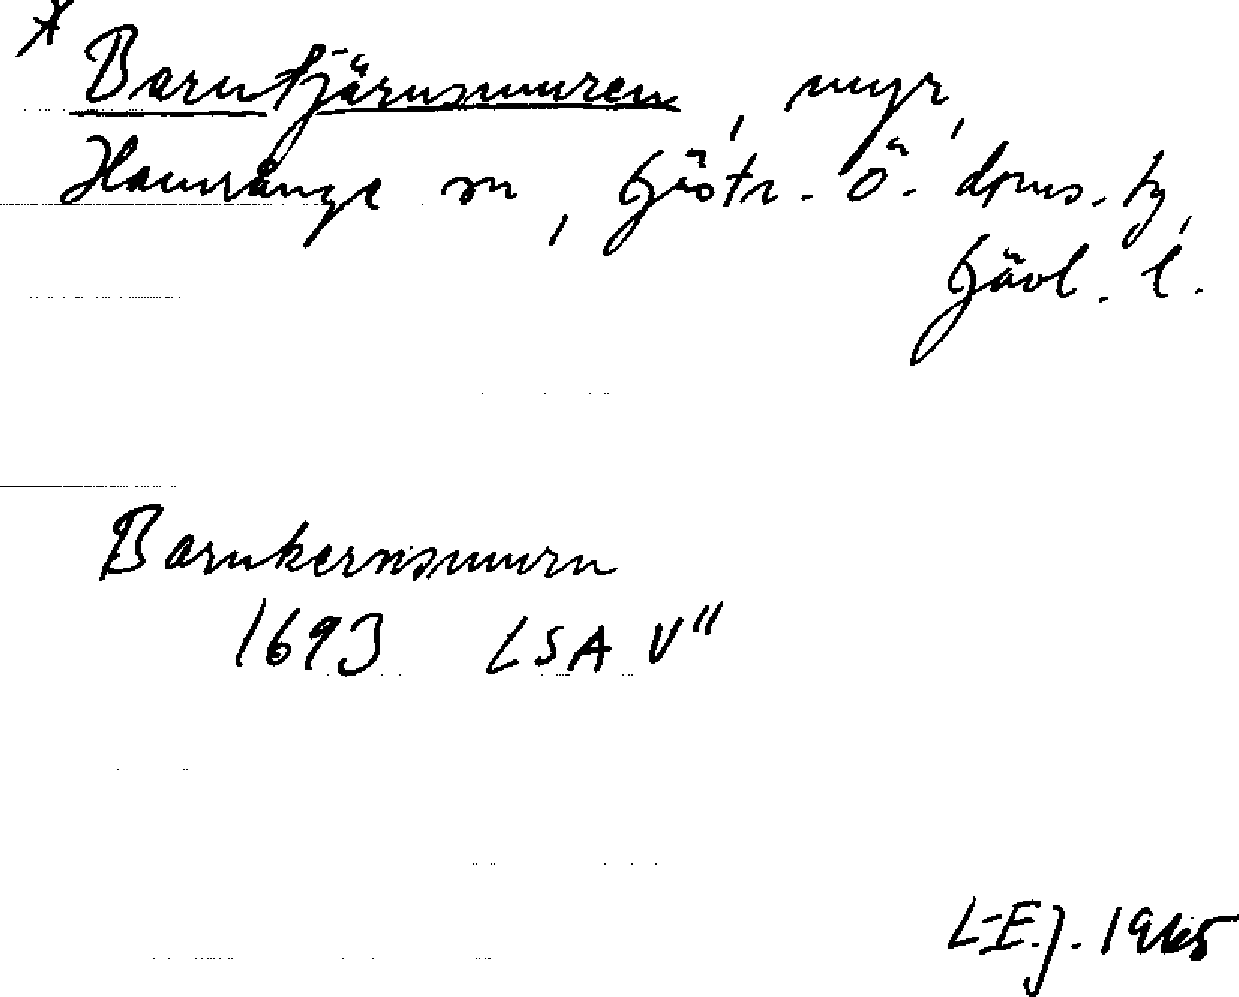 * Barntjärnsmuren, myr,
Hamrånge sn, Gästr. Ö. doms. hg,
Gävl. l.
Barnkernsmurn
1693 LSA V"
L-E.J. 1965